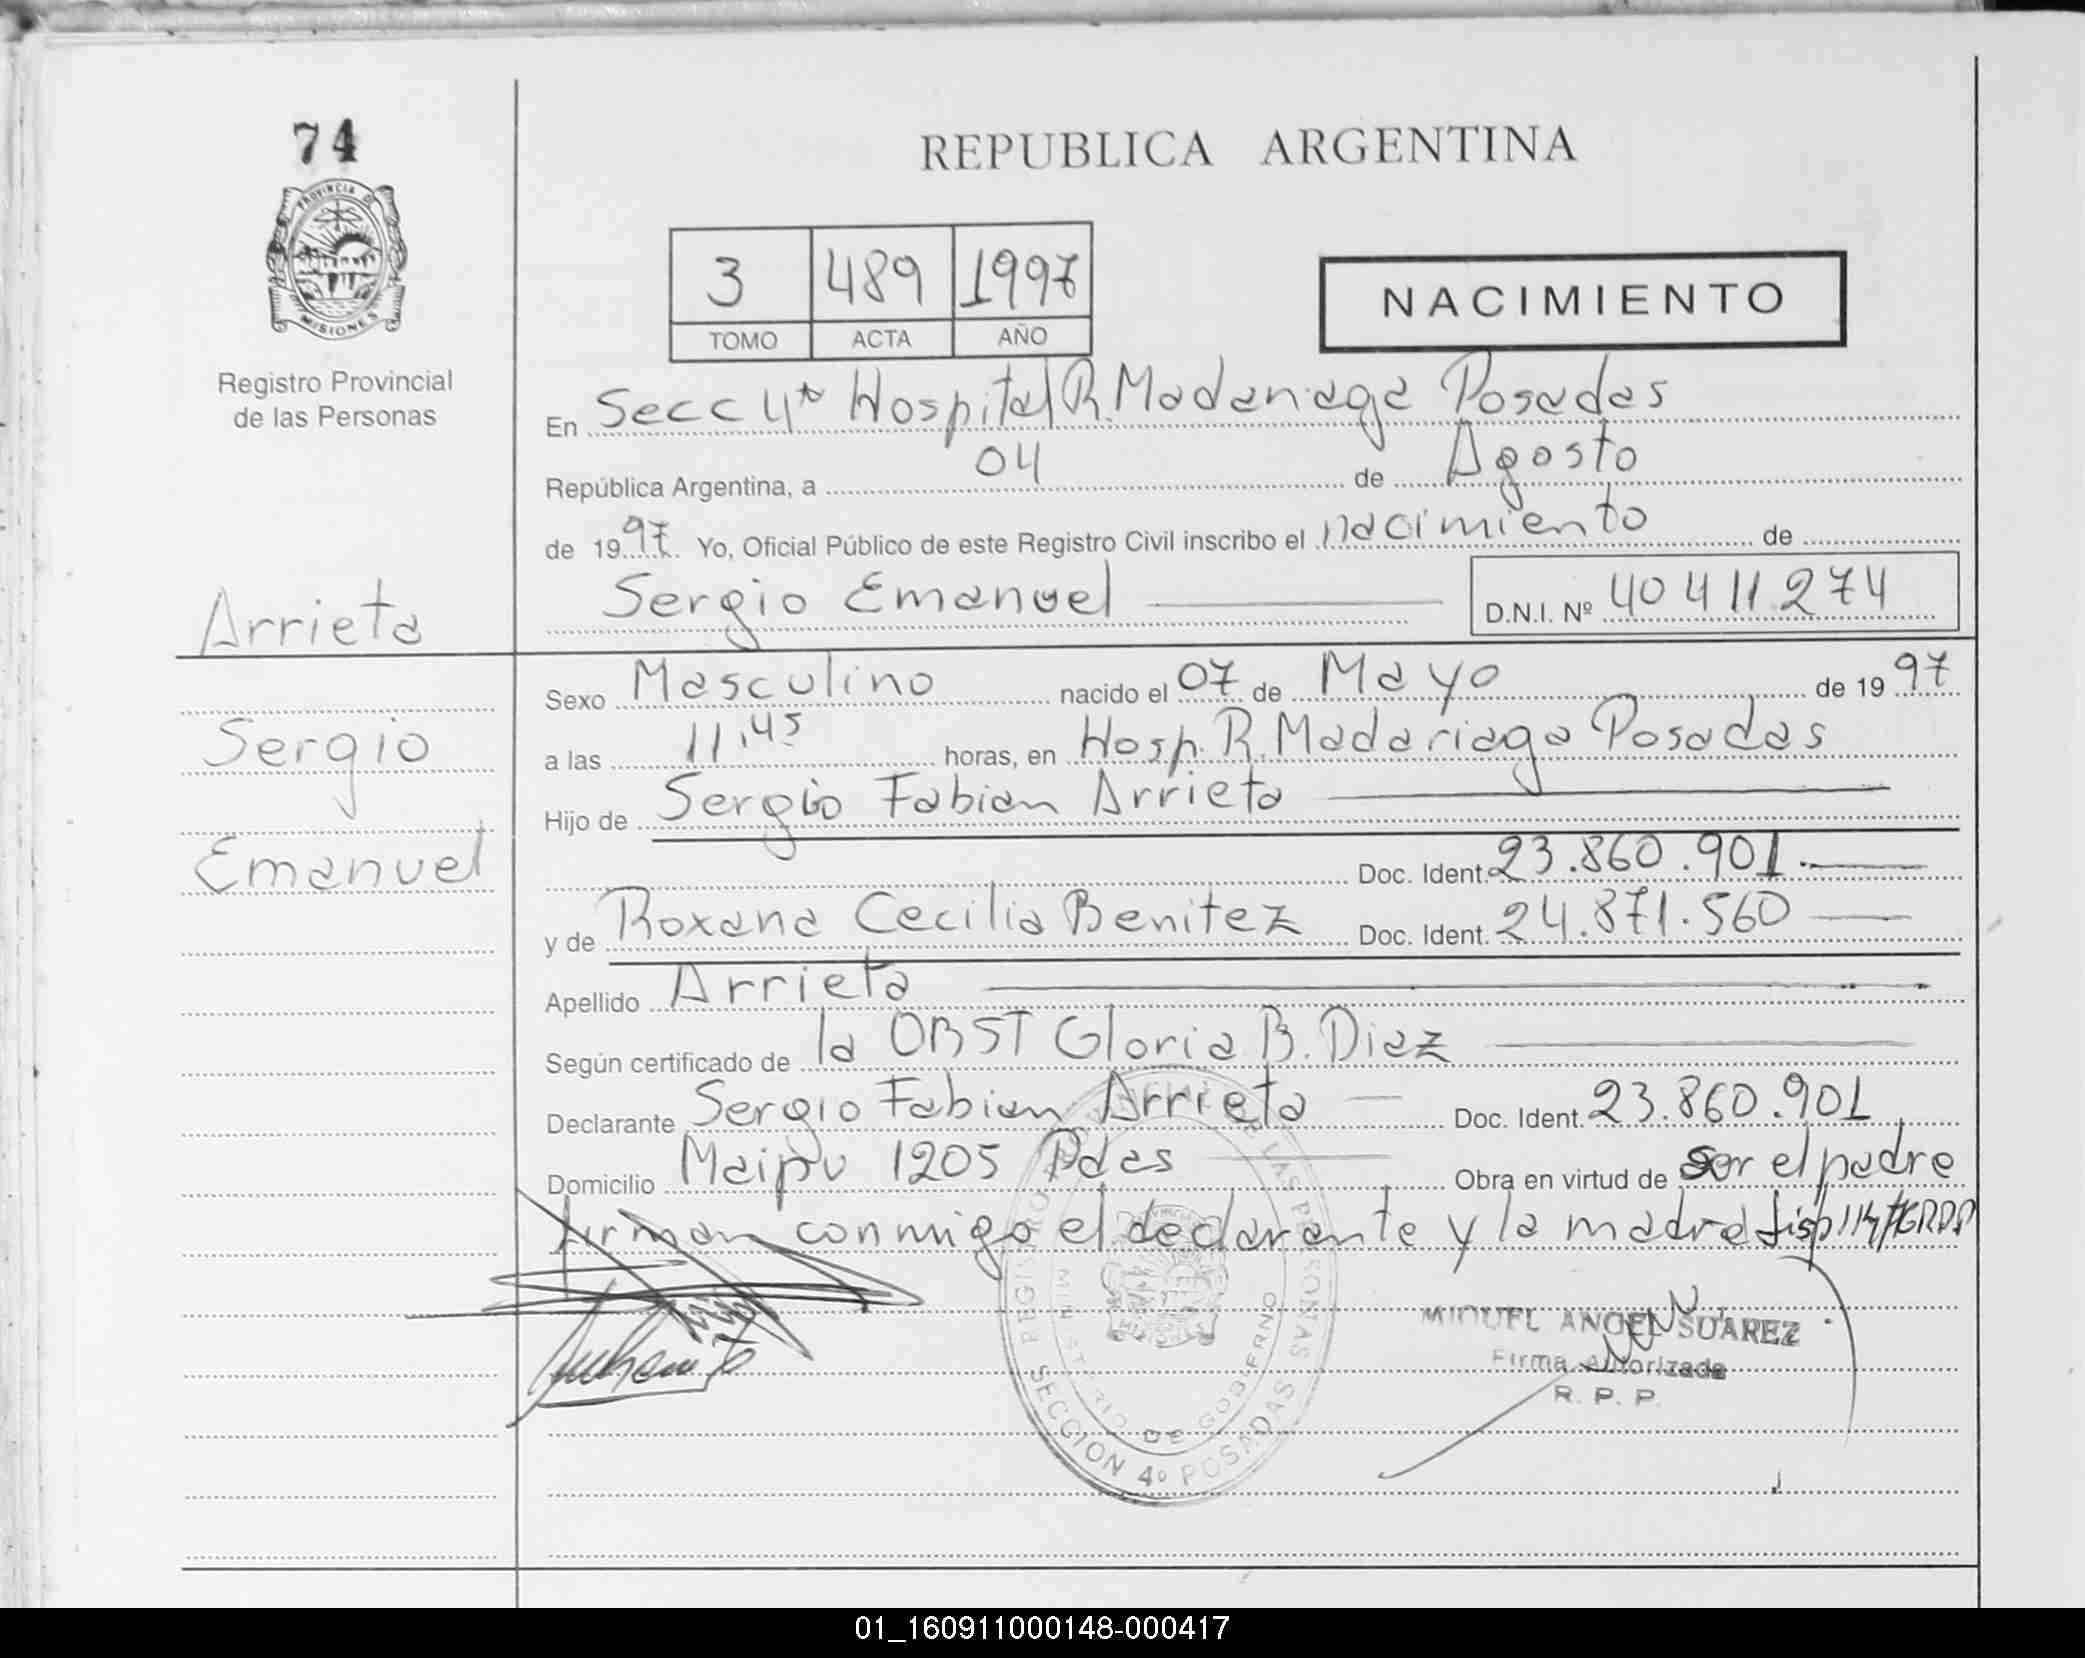 74
PROVINCIA DE
MISIONES
Registro Provincial
de las Personas
REPUBLICA ARGENTINA
3 489 1997
TOMO ACTA AÑO
NACIMIENTO
En Secc 4ta Hospital R. Madariaga Posadas
República Argentina, a 04 de Agosto
de 1997 Yo, Oficial Público de este Registro Civil inscribo el nacimiento de
Sergio Emanuel D.N.I. Nº 40411274
Arrieta
Sergio
Emanuel
Sexo Masculino nacido el 07 de Mayo de 1997
a las 11,45 horas, en Hosp. R. Madariaga Posadas
Hijo de Sergio Fabian Arrieta
Doc. Ident. 23.860.901
y de Roxana Cecilia Benitez Doc. Ident. 24.871.560
Apellido Arrieta
Según certificado de la OBST Gloria B. Diaz
Declarante Sergio Fabian Arrieta Doc. Ident. 23.860.901
Domicilio Maipu 1205 Pdas Obra en virtud de ser el padre
firman conmigo el declarante y la madre
MIGUEL ANGEL SUAREZ
Firma Autorizada
R. P. P.
REGISTRO PROVINCIAL DE LAS PERSONAS
MINISTERIO DE GOBIERNO
SECCION 4º POSADAS
01_160911000148-000417